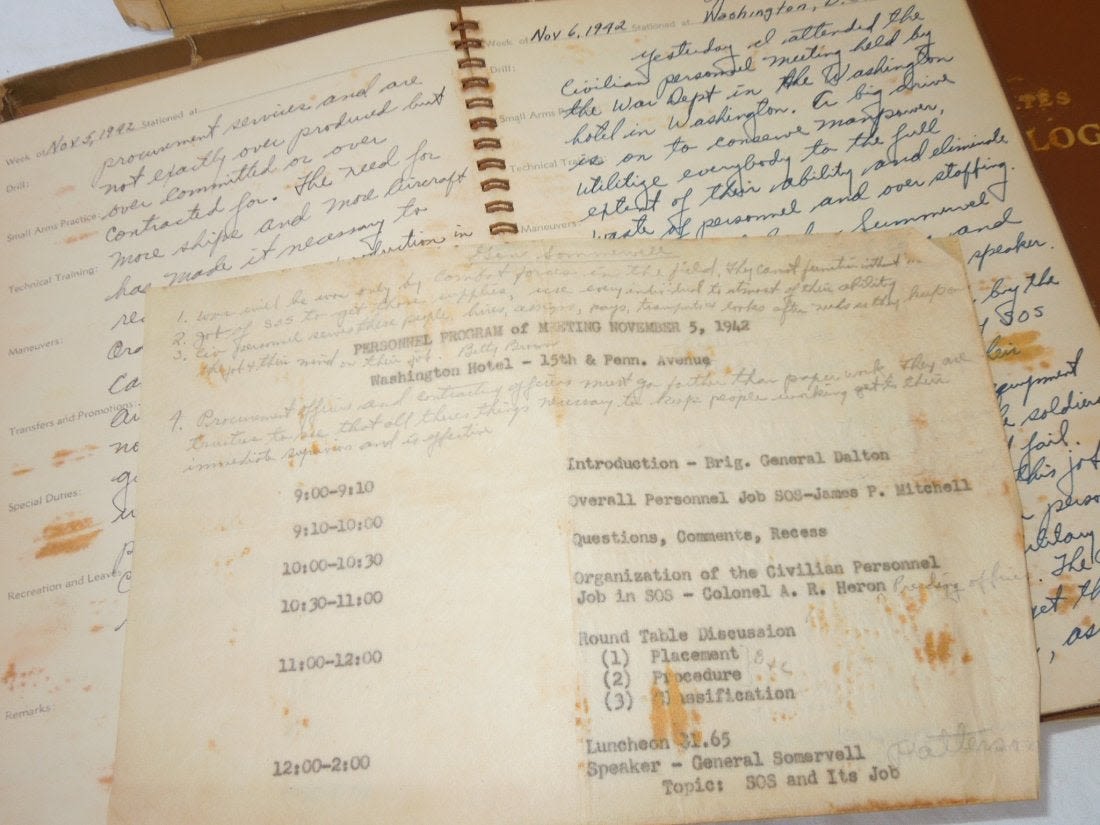 Week of Nov 5, 1942 Stationed at
procurement services and are
Drill:
not exactly over produced but
over committed or over
Small Arms Practice:
contracted for. The need for
more ships and more aircraft
Technical Training:
has made it necessary to
duction in
Maneuvers:
Transfers and Promotions:
Special Duties:
Recreation and Leaves
Remarks:
Week of Nov 6, 1942 Stationed at Washington, D.
Yesterday I attended the
Drill:
Civilian personnel meeting held by
the War Dept in the Washington
Small Arms P
hotel in Washington. A big drive
is on to conserve manpower,
Technical Tra
utilitize everybody to the full
extent of their ability and eliminate
Maneuvers:
waste of personnel and over staffing.
Summervel
and
speaker.
buy the
SOS
eir
equipment
soldiers
fail.
this job
person
ilitary
The
get th
as
TES
LOG
Gen Sommervell
1. War will be won only by combat forces in the field. They cannot function without
2. Job of SOS to get them supplies, use every individual to utmost of their ability
3. Civ personnel serves these people, hires, assigns, pays, looks after needs so they keep on
the job & their mind on their job. Betty Brown
PERSONNEL PROGRAM of MEETING NOVEMBER 5, 1942
Washington Hotel - 15th & Penn. Avenue
4. Procurement officers and contracting officers must go farther than paper work. They are
trustees to see that all these things necessary to keep people working get to their
immediate superiors and is effective
9:00-9:10 Introduction - Brig. General Dalton
9:10-10:00 Overall Personnel Job SOS-James P. Mitchell
10:00-10:30 Questions, Comments, Recess
10:30-11:00 Organization of the Civilian Personnel
Job in SOS - Colonel A. R. Heron Presiding officer
11:00-12:00 Round Table Discussion
(1) Placement
(2) Procedure
(3) Classification
Luncheon $1.65
12:00-2:00 Speaker - General Somervell Patterson
Topic: SOS and Its Job